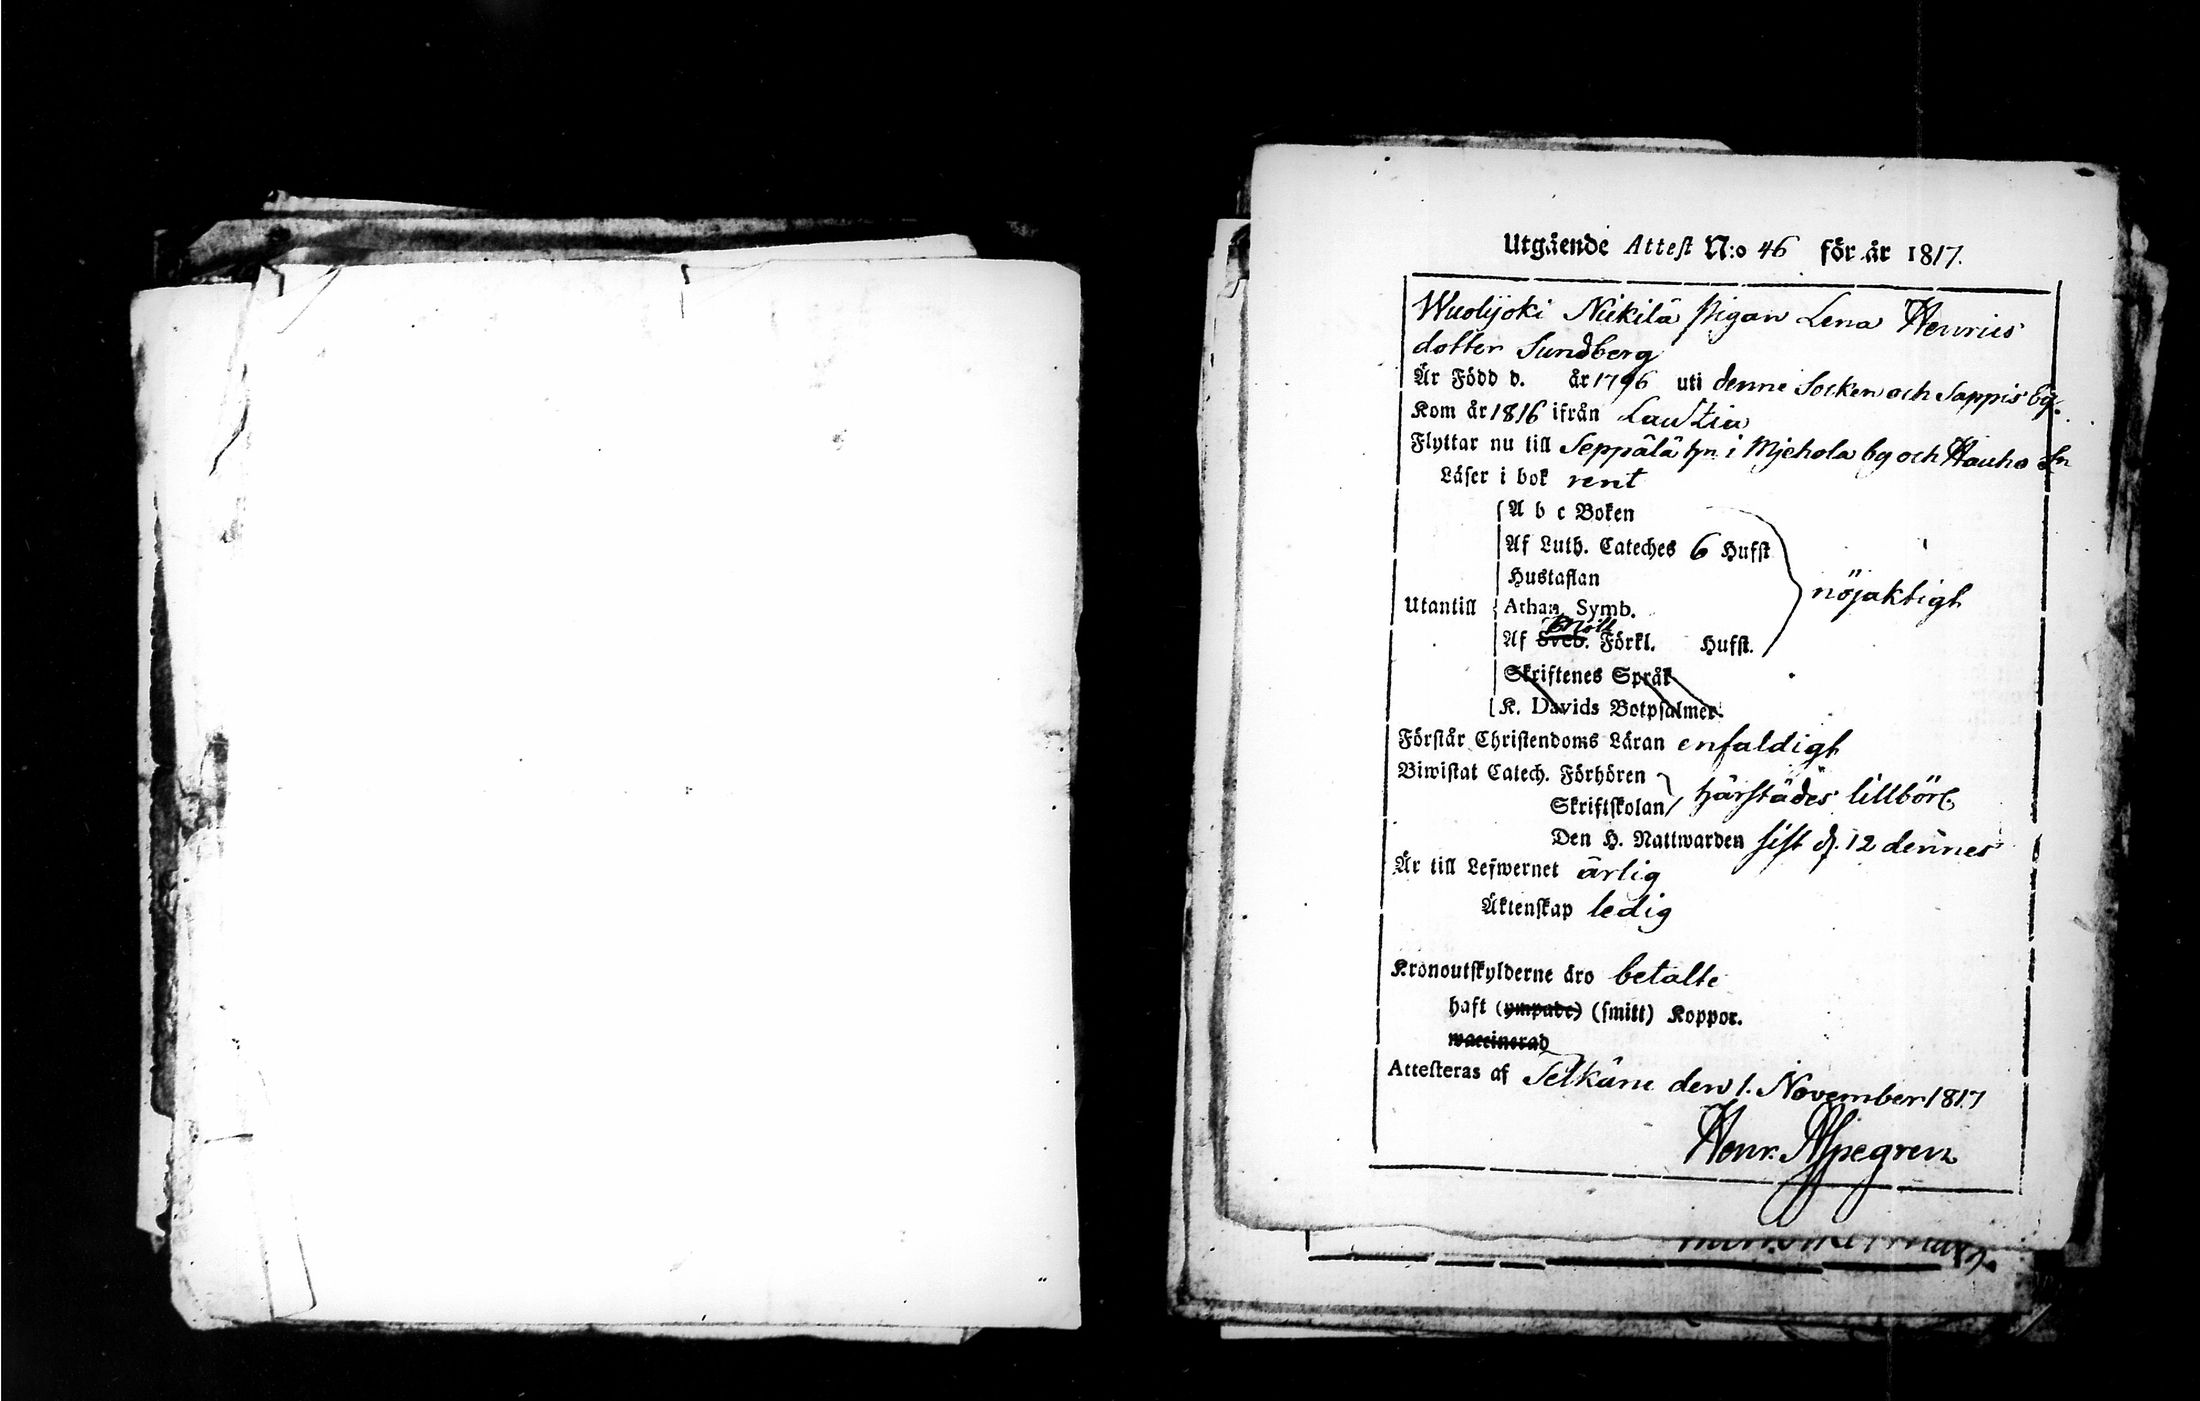 Utgående Attest N:o 46 för år 1817.
Wuolijoki Niekilä pigan Lena Henrics
dotter Sundberg
Är Född d. år 1796 uti denne Socken och Sappis by.
Kom år 1816 ifrån Lautia
Flyttar nu till Seppälä hn i Mjehola by och Hauho Sn
Läser i bok rent
A b c Boken
Af Luth. Cateches 6 Hufst
Hustaflan
Utantill Athan. Symb. nöjaktigt
Af Sveb. Förkl. Hufst.
Skriftenes Språk
K. Davids Botpsalmer.
Förstår Christendoms Läran enfaldigt
Biwistat Catech. Förhören
Skriftskolan härstädes tillbörl.
Den H. Nattwarden sist d. 12 dennes
Är till Lefwernet ärlig
Äktenskap ledig
Kronoutskylderne äro betalte
haft (ympade) (smitt) Koppor.
waccinerad
Attesteras af Selkäne den 1. November 1817
Henr. Alpegren